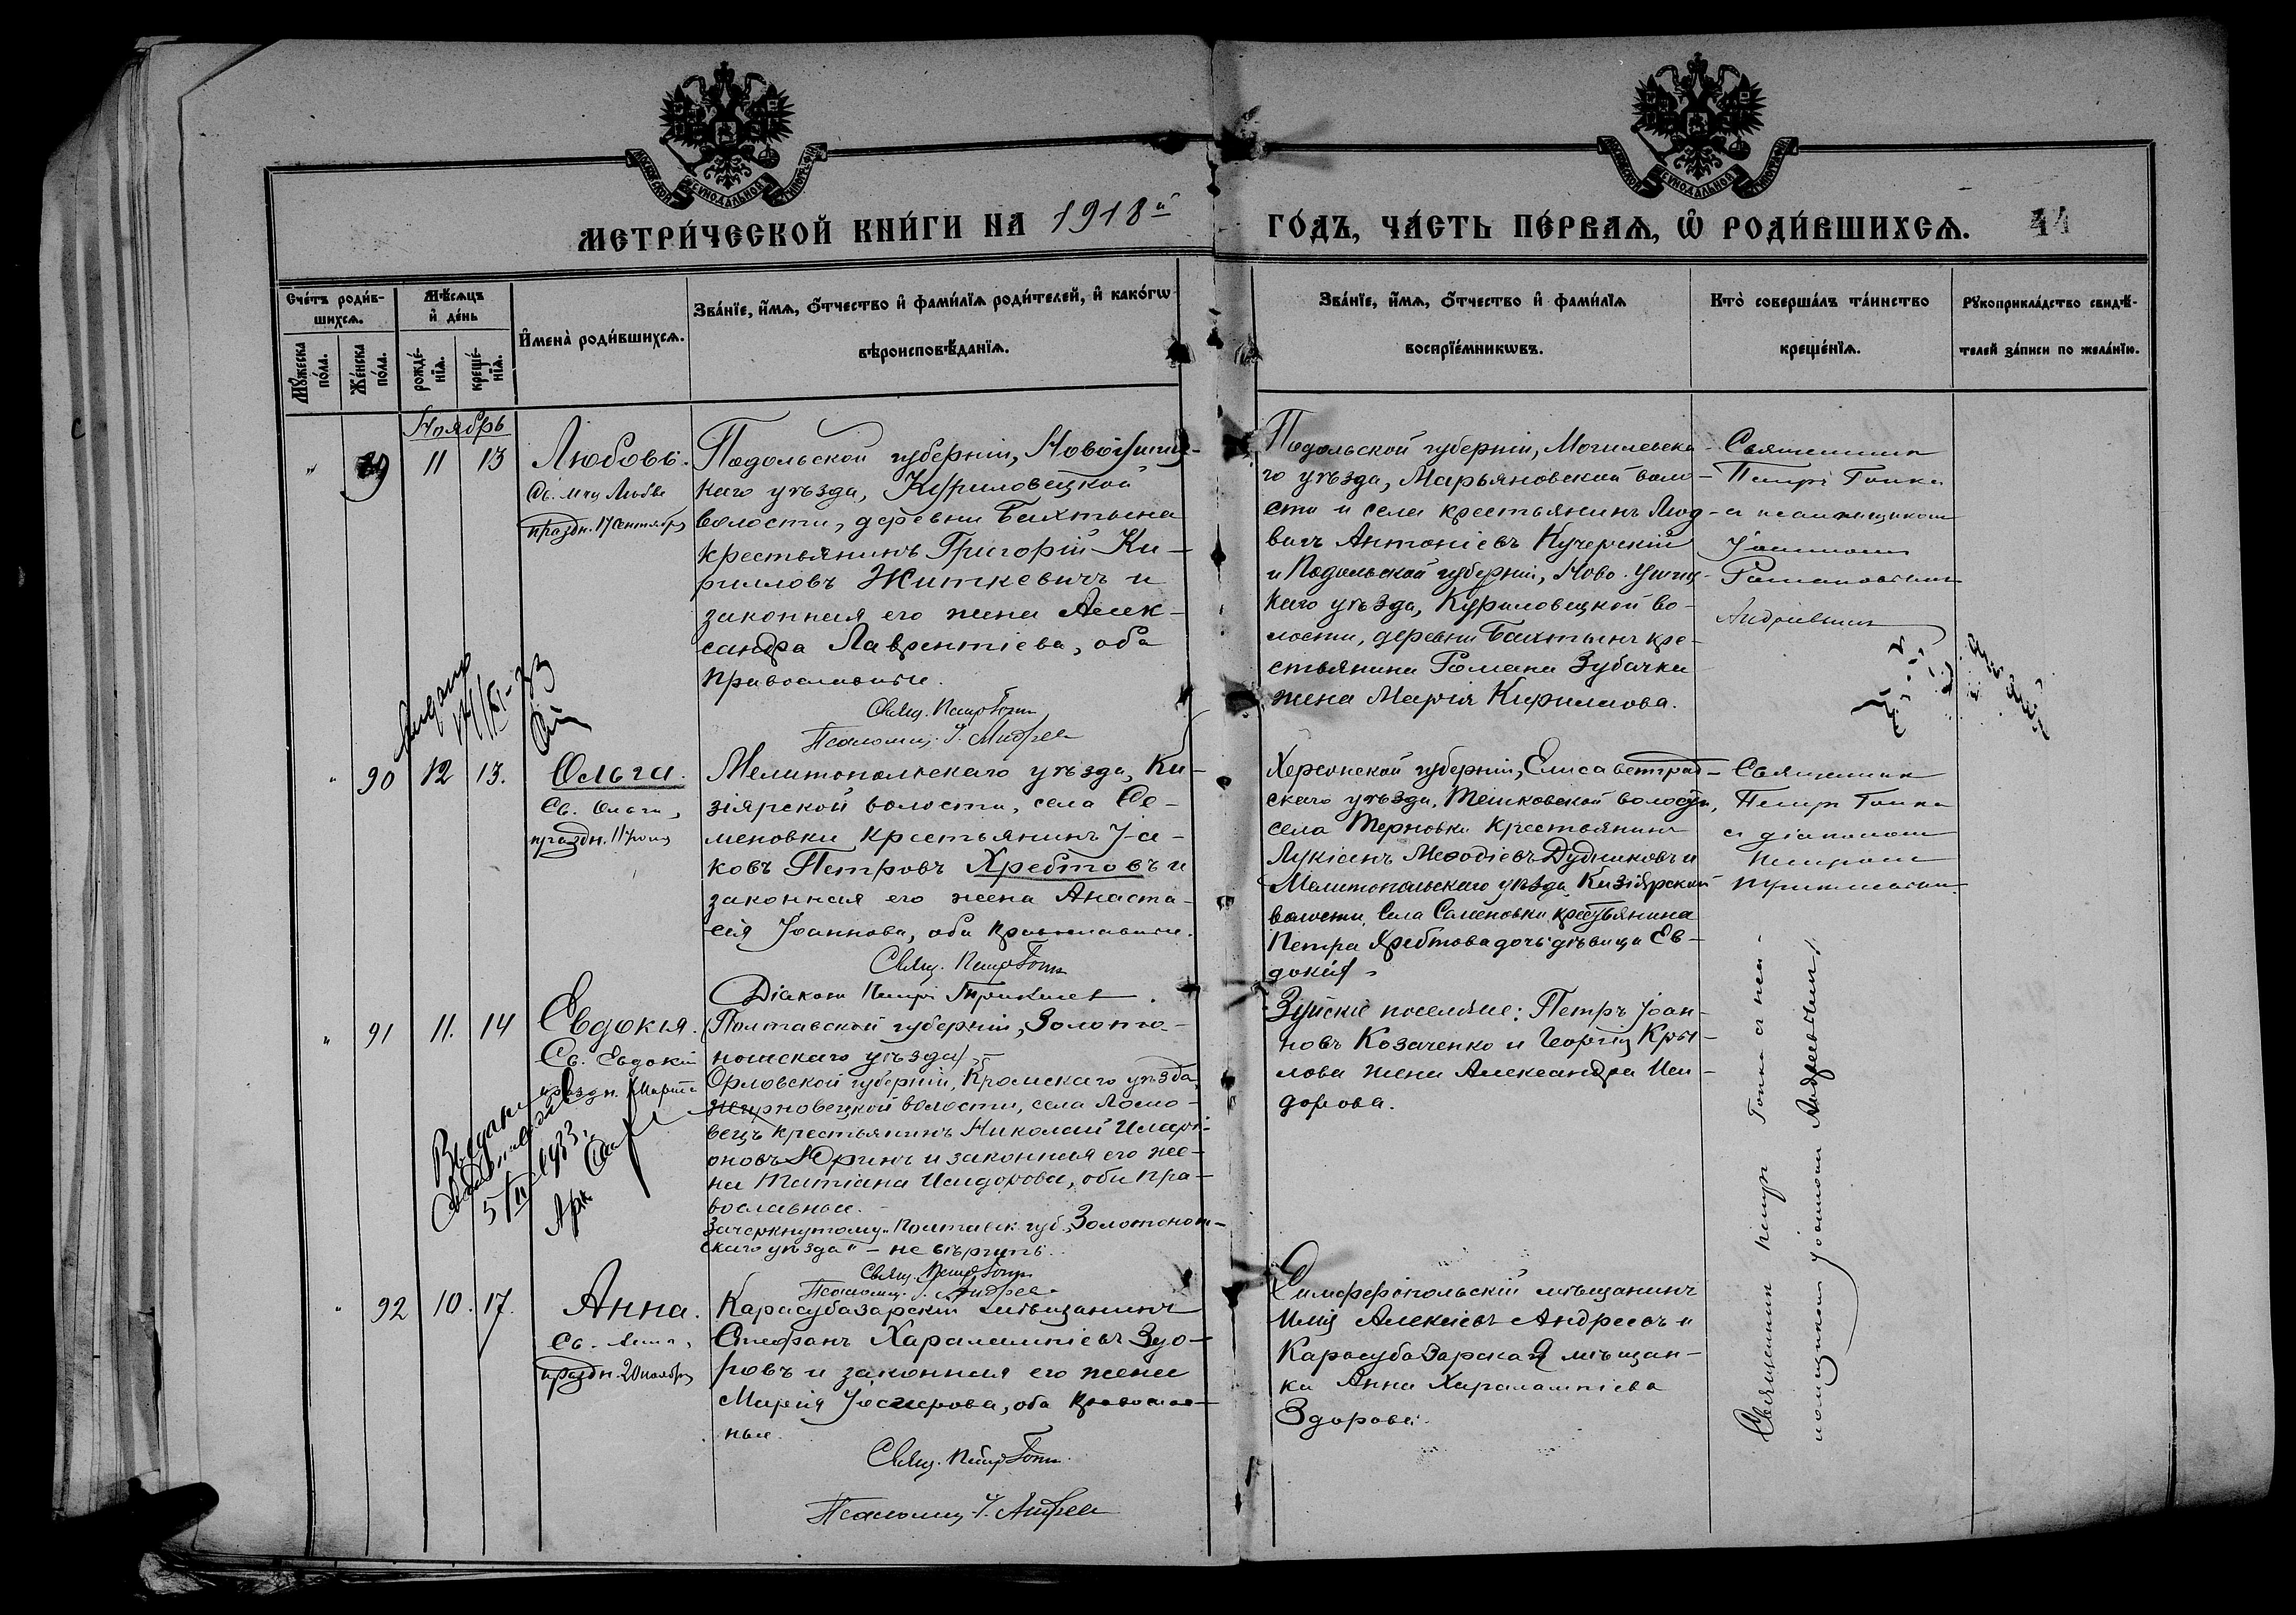 МЕТРИ́ЧЕСКОЙ КНИ́ГИ НА 1918й ГО́ДЪ, ЧА́СТЬ ПЕ́РВАѦ, Ѽ РОДИ́ВШИХСѦ. 44
Сче́тъ роди́вшихсѧ.
Мꙋ́жеска по́ла.
Же́нска по́ла.
Мѣ́сѧцъ и҆ де́нь
рожде́нїѧ.
креще́нїѧ.
И҆мена̀ роди́вшихсѧ.
Зва́нїе, и҆́мѧ, ѻ҆́тчество и҆ фами́лїѧ роди́телей, и҆ како́гѡ
вѣроисповѣ́данїѧ.
Зва́нїе, и҆́мѧ, ѻ҆́тчество и҆ фами́лїѧ
воспрїе́мникѡвъ.
Кто̀ соверша́лъ та́инство
креще́нїѧ.
Рꙋкоприкла́дство свидѣ́-
телей за́писи по жела́нїю.
Ноябрь
" 89 11 13
Любовь.
Св. мчц Любве
праздн. 17 Сентября
Подольской губерніи, Новоушиц-
каго уѣзда, Куриловецкой
волости, деревни Бахтына
крестьянинъ Григорій Ки-
рилловъ Житкевичъ и
законная его жена Алек-
сандра Лаврентіева, оба
православные.
Свящ. Петръ Гопка
Псаломщ. І. Андріев
Подольской губерніи, Могилевска-
го уѣзда, Марьяновской воло-
сти и села крестьянинъ Люд-
вигъ Антоніевъ Кучерскій
и Подольской губерніи, Ново-Ушиц-
каго уѣзда, Куриловецкой во-
лости, деревни Бахтынъ кре-
стьянина Романа Зубачка
жена Марія Кириллова.
Священникъ
Петръ Гопка
съ псаломщикомъ
Іоанномъ
Андріевымъ
" 90 12 13.
Ольга.
Св. Ольги,
праздн. 11 Іюля
Мелитопольскаго уѣзда, Ки-
зіярской волости, села Се-
меновки крестьянинъ Іа-
ковъ Петровъ Хребтовъ и
законная его жена Анаста-
сія Іоаннова, оба православные.
Свящ. Петръ Гопка
Діаконъ Петръ
Херсонской губерніи, Елисаветград-
скаго уѣзда, волости,
села Терновки крестьянинъ
Лукіанъ Меѳодіевъ Дудниковъ и
Мелитопольскаго уѣзда Кизіярской
волости села Семеновки крестьянина
Петра Хребтова дочь дѣвица Ев-
докія.
Священникъ
Петръ Гопка
съ діакономъ
Петромъ
" 91 11. 14
Евдокія.
Св. Евдокіи
праздн. 1 Марта
(Полтавской губерніи, Золото-
ношскаго уѣзда)
Орловской губерніи, Кромскаго уѣзда,
волости, села Ломо-
вецъ крестьянинъ Николай Илари-
оновъ Юринъ и законная его же-
на Татіана Исидорова, оба пра-
вославные.
Зачеркнутому "Полтавск. губ. Золотонош-
скаго уѣзда" – не вѣрить.
Свящ. Петръ Гопка
Псаломщ. І. Андріев
5/II 1933.
Зуйскіе поселяне: Петръ Іоан-
новъ Козаченко и Георгія Кры-
лова жена Александра Иси-
дорова.
" 92 10. 17.
Анна.
Св. Анны,
праздн. 20 ноября
Карасубазарскій мѣщанинъ
Стефанъ Харалампіевъ Здо-
ровъ и законная его жена
Марія, оба православ-
ные.
Свящ. Петръ Гопка
Псаломщ. І. Андріев
Симферопольскій мѣщанинъ
Илія Алексіевъ Андреевъ и
Карасубазарская мѣщан-
ка Анна Харалампіева
Здорова.
Священникъ Петръ Гопка съ псал-
ломщикомъ Іоанномъ Андріевымъ